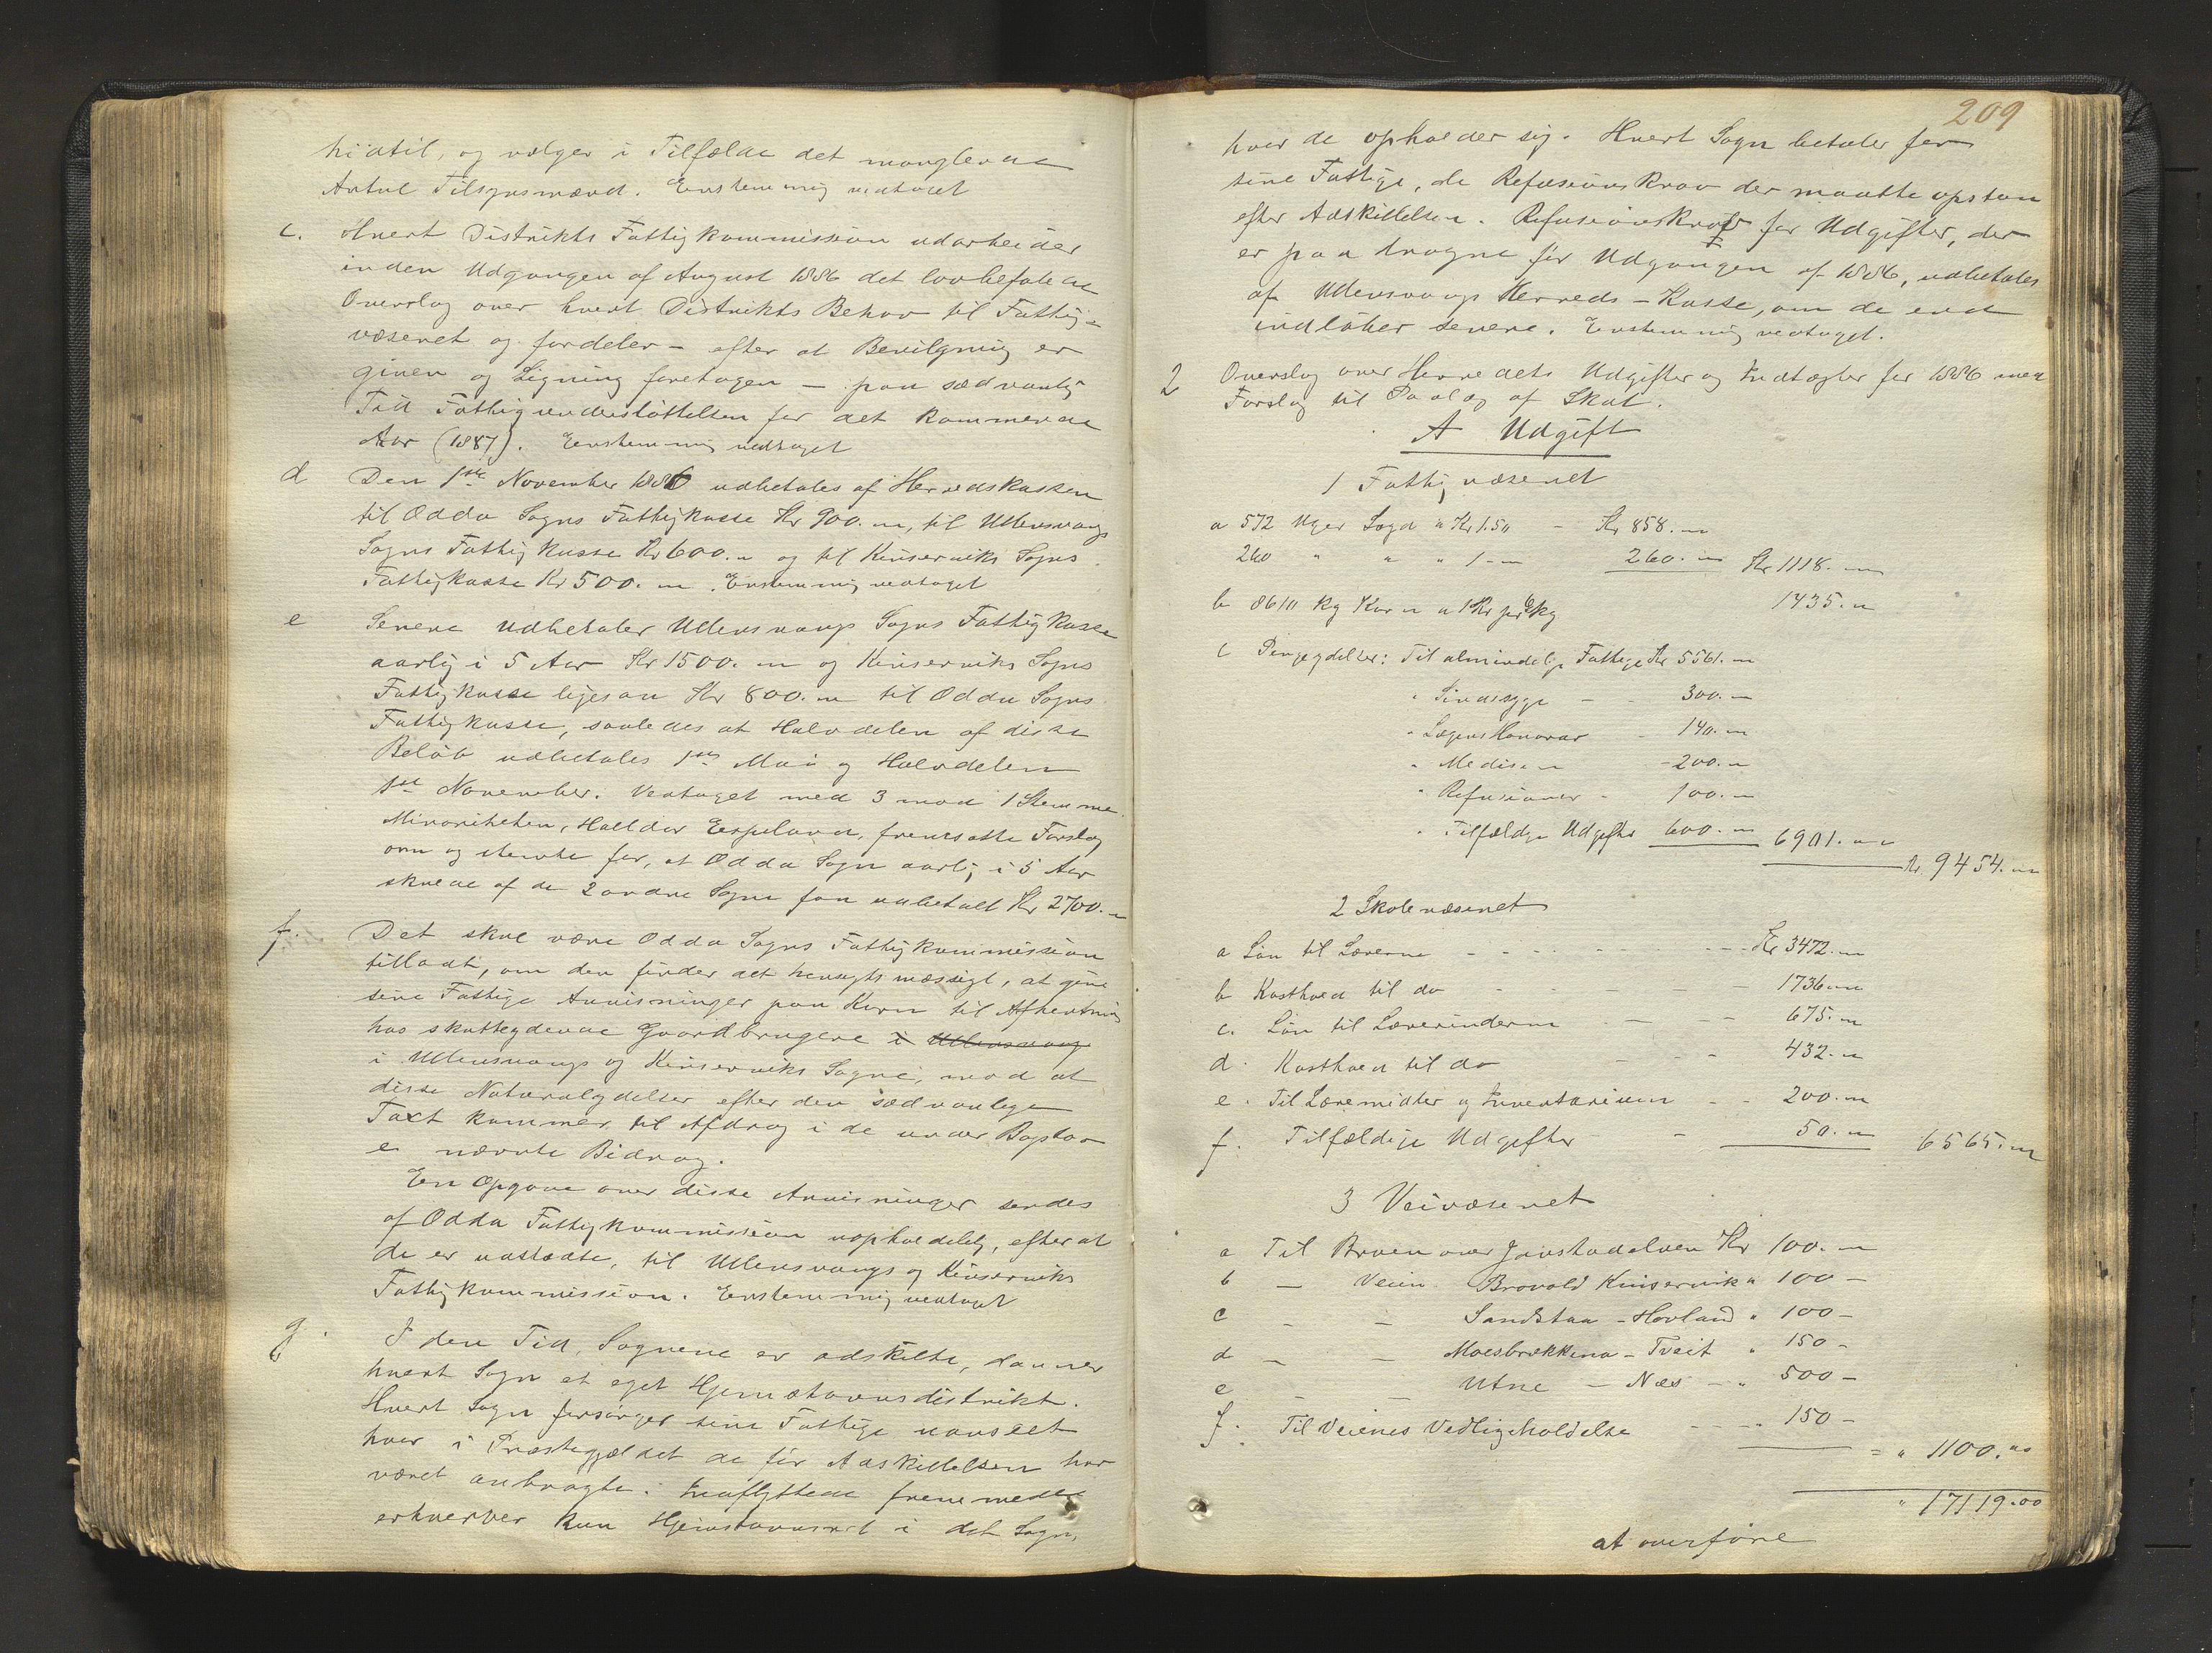 hidtil, og vælger i Tilfælde det manglende
Antal Tilsynsmænd. Enstemmig vedtaget
c. Hvert Distrikts Fattigkommission udarbeider
inden Udgangen af August 1886 det lovbefalede
Overslag over hvert Distrikts Behov til Fattig-
væsenet og fordeler – efter at Bevilgning er
given og Ligning foretagen – paa sædvanlig
Tid Fattigunderstöttelsen for det kommende
Aar (1887). Enstemmig vedtaget
d Den 1ste November 1886 udbetales af Herredskassen
til Odda Sogns Fattigkasse Kr 900. „, til Ullensvangs
Sogns Fattigkasse Kr 600. „ og til Kinserviks Sogns
Fattigkasse Kr 500. „. Enstemmig vedtaget
e Senere udbetaler Ullensvangs Sogns Fattigkasse
aarlig i 5 Aar Kr 1500. „ og Kinserviks Sogns
Fattigkasse ligesaa Kr 800. „ til Odda Sogns
Fattigkasse, saaledes at Halvdelen af disse
Belöb udbetales 1ste Mai og Halvdelen
1ste November. Vedtaget med 3 mod 1 Stemme.
Minoriteten, Halldor Espeland, fremsatte Forslag
om og stemte for, at Odda Sogn aarlig i 5 Aar
skulde af de 2 andre Sogne faa udbetalt Kr 2700. „
f. Det skal være Odda Sogns Fattigkommission
tilladt, om den finder det hensigtsmæssigt, at give
sine Fattige Anvisninger paa Korn til Afhentning
hos skatteydende Gaardbrugere i Ullensvang
i Ullensvangs og Kinserviks Sogne, mod at
disse Naturalydelser efter den sædvanlige
Taxt kommer til Afdrag i de under Bogstav
e nævnte Bidrag.
En Opgave over disse Anvisninger sendes
af Odda Fattigkommission uopholdelig, efter at
de er udstædte, til Ullensvangs og Kinserviks
Fattigkommission. Enstemmig vedtaget
g. I den Tid, Sognene er adskilte, danner
hvert Sogn et eget Hjemstavnsdistrikt.
Hvert Sogn forsörger sine Fattige uanseet
hvor i Præstegjældet de för Adskillelsen har
været anbragte. Indflyttede fremmede
erhverver kun Hjemstavnsret i det Sogn,
209
hvor de opholder sig. Hvert Sogn betaler for
sine Fattige, de Refusionskrav der maatte opstaa
efter Adskillelsen. Refusionskrav for Udgifter, der
er paadragne för Udgangen af 1886, udbetales
af Ullensvangs Herreds-Kasse, om de end
indlöber senere. Enstemmig vedtaget.
2 Overslag over Herredets Udgifter og Indtægter for 1886 med
Forslag til Paalæg af Skat.
A Udgift
1 Fattigvæsenet
a 572 Uger Lægd a Kr 1.50 – Kr 858. „
260 " " " 1 – „ 260. „ Kr 1118. „
b 8610 kg Korn a 1 Kr pr 6 kg 1435. „
c Pengeydelser: Til almindelige Fattige Kr 5561. „
" Sindssyge – 300. „
" Lægens Honorar – 140. „
" Medisin – 200. „
" Refusioner – 100. „
" Tilfældige Udgifter 600. „ 6901. „
Kr 9454. „
2 Skolevæsenet
a Lön til Lærerne – – – Kr 3472. „
b Kosthold til do – – – 1736 „
c. Lön til Lærerinderne – – 675. „
d. Kosthold til do – – – 432. „
e. Til Læremidler og Inventarium – – 200. „
f. Tilfældige Udgifter – – 50. „ 6565. „
3 Veivæsenet
a Til Broen over Jonstadelven Kr 100. „
b – Veien Brovold Kinservik " 100 –
c – – Sandstaa – Hovland " 100 –
d – – Maesbrækkene – Tveit " 150 –
e – – Utne – Næs – " 500 –
f. Til Veienes Vedligeholdelse – – – " 150 –
= " 1100. 00
" 17119.00
at overföre